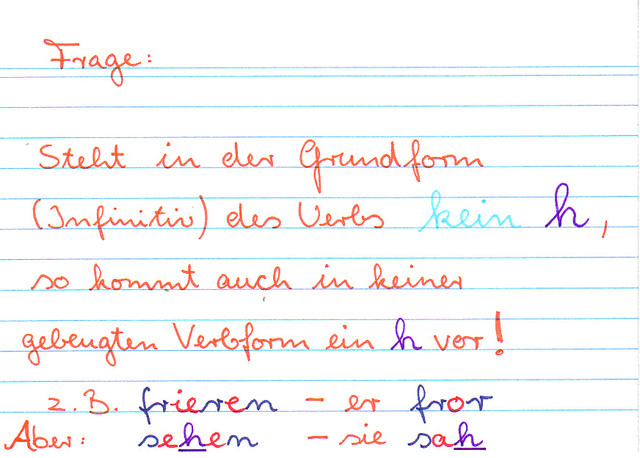 Frage:
Steht in der Grundform
(Infinitiv) des Verbs kein h,
so kommt auch in keiner
gebeugten Verbform ein h vor!
z.B. frieren - er fror
Aber: sehen - sie sah